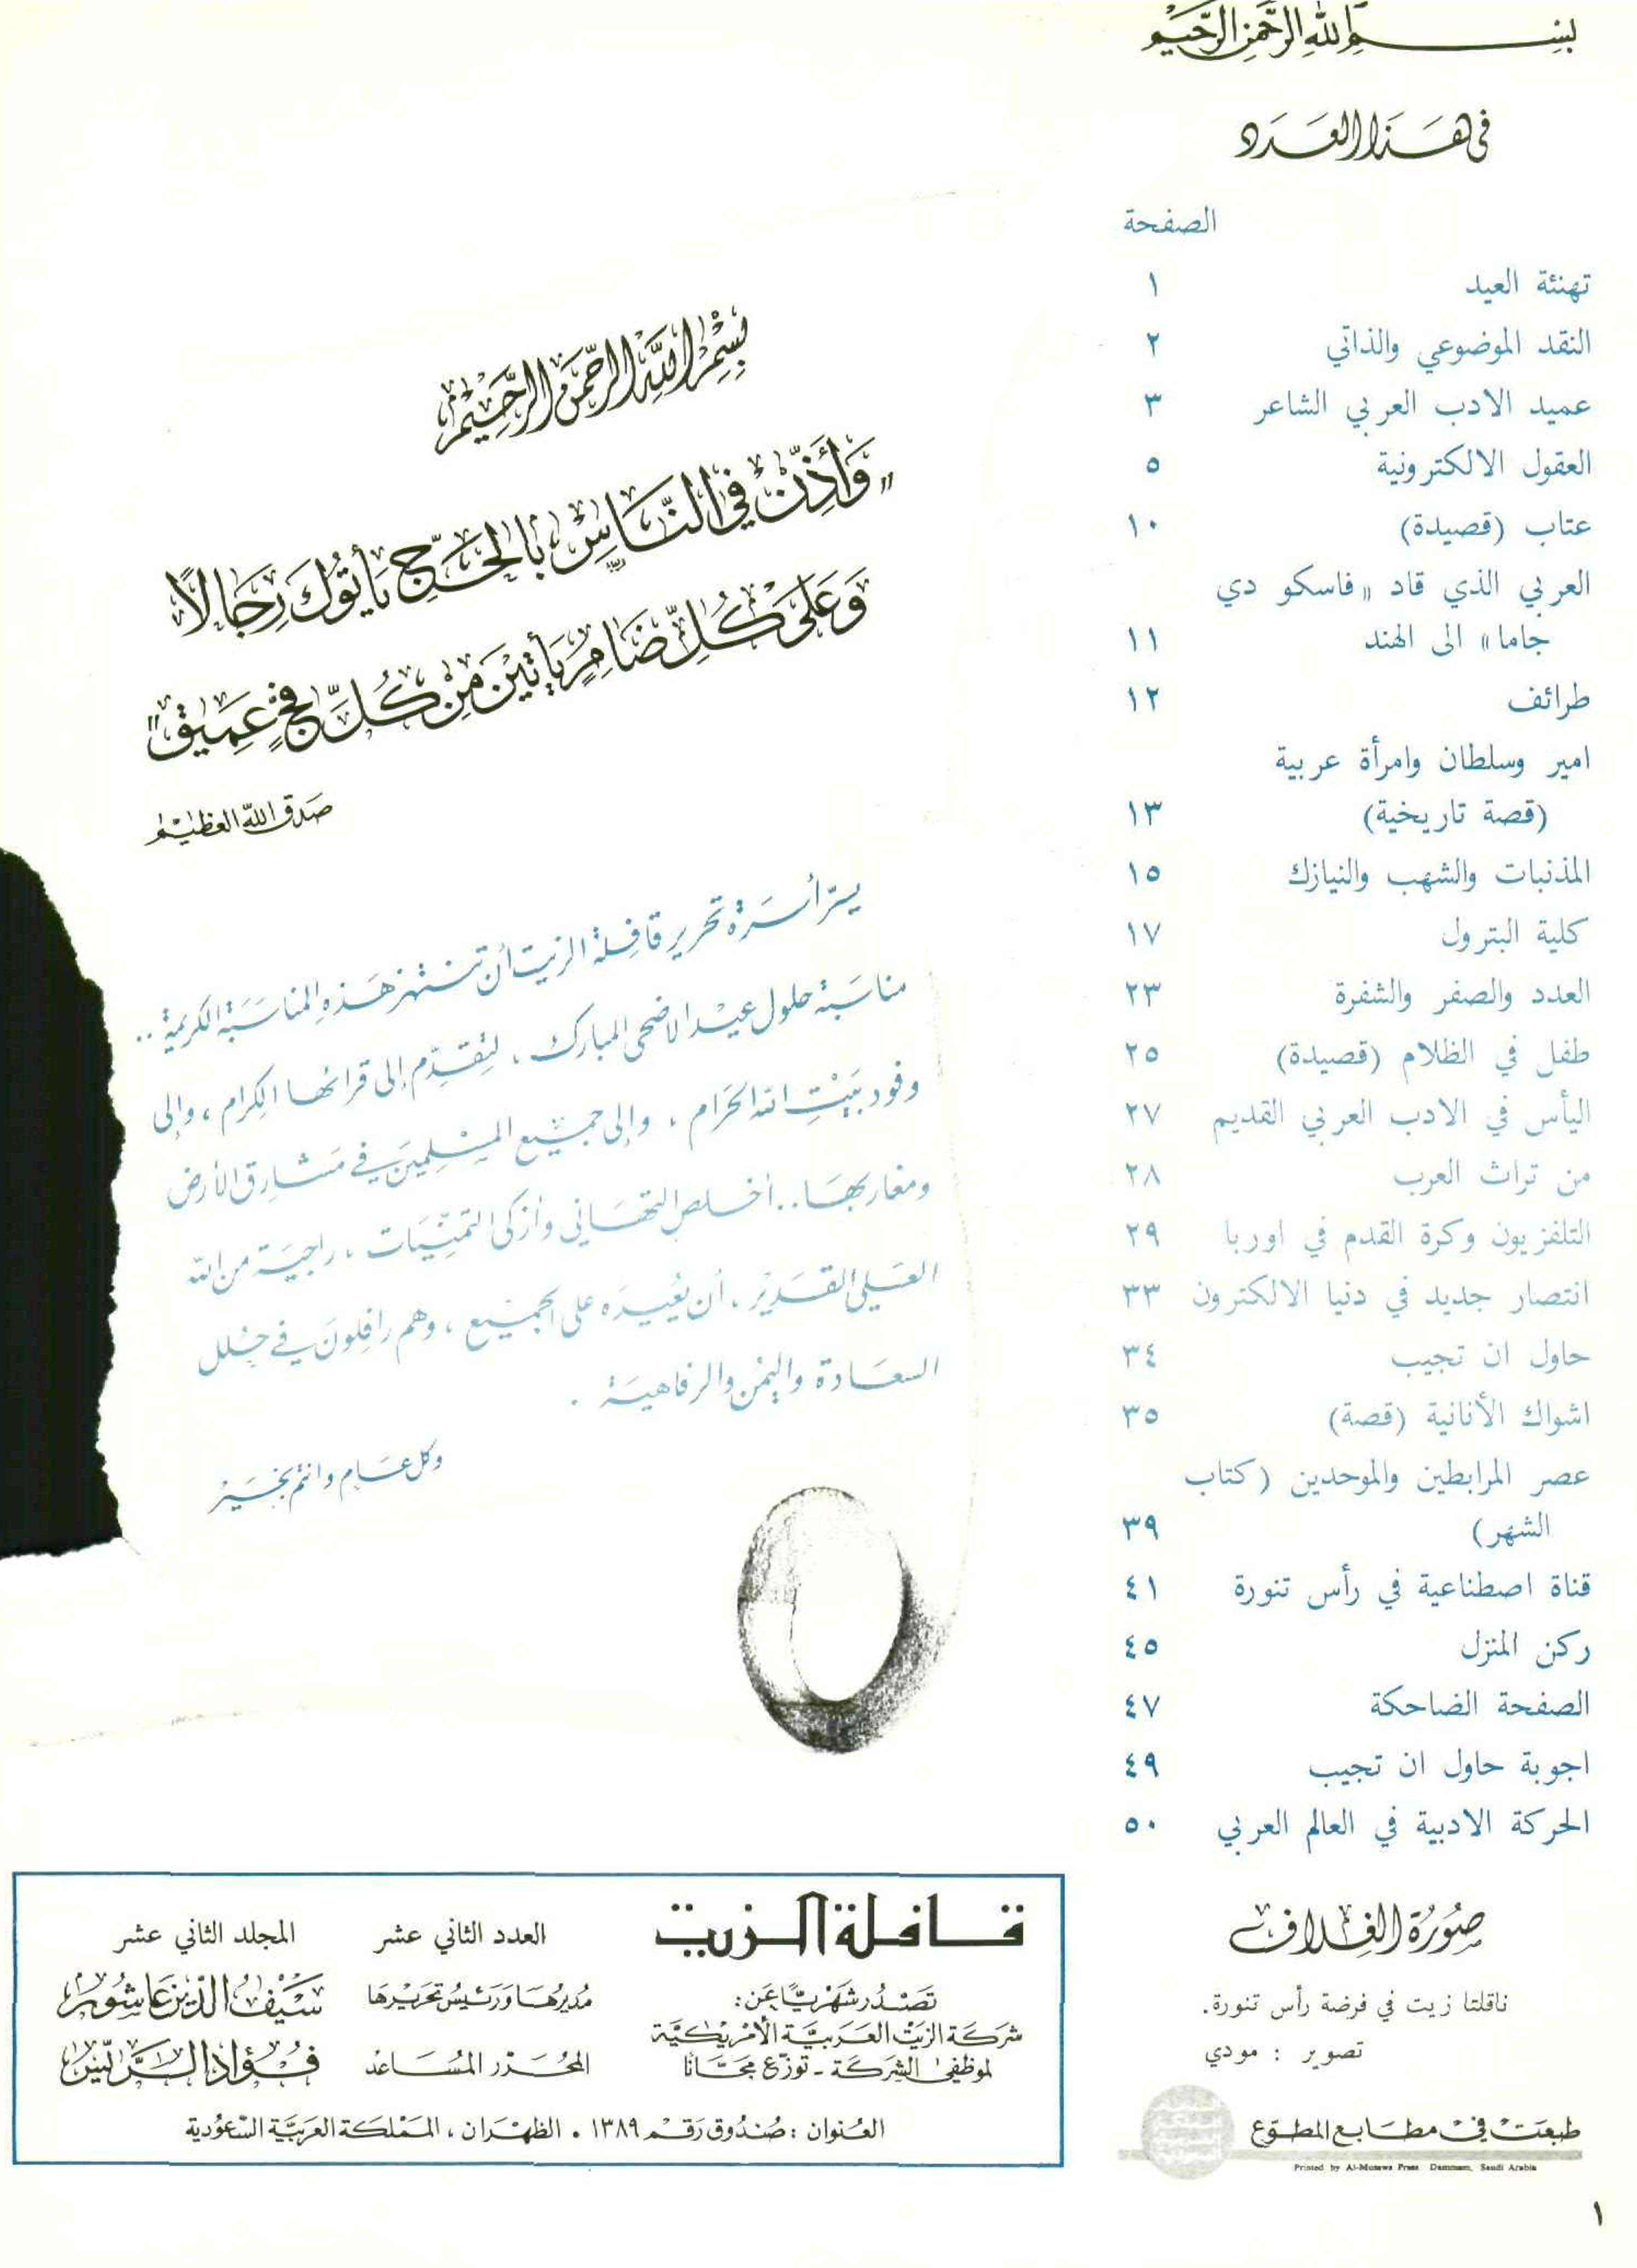 بسم الله الرحمن الرحيم
في هذا العدد
الصفحة
تهنئة العيد ١
النقد الموضوعي والذاتي ٢
عميد الادب العربي الشاعر ٣
العقول الالكترونية ٥
عتاب (قصيدة) ١٠
العربي الذي قاد «فاسكو دي
جاما» الى الهند ١١
طرائف ١٢
امير وسلطان وامرأة عربية
(قصة تاريخية) ١٣
المذنبات والشهب والنيازك ١٥
كلية البترول ١٧
العدد والصفر والشفرة ٢٣
طفل في الظلام (قصيدة) ٢٥
اليأس في الادب العربي القديم ٢٧
من تراث العرب ٢٨
التلفزيون وكرة القدم في اوربا ٢٩
انتصار جديد في دنيا الالكترون ٣٣
حاول ان تجيب ٣٤
اشواك الأنانية (قصة) ٣٥
عصر المرابطين والموحدين (كتاب
الشهر) ٣٩
قناة اصطناعية في رأس تنورة ٤١
ركن المنزل ٤٥
الصفحة الضاحكة ٤٧
اجوبة حاول ان تجيب ٤٩
الحركة الادبية في العالم العربي ٥٠
صورة الغلاف
ناقلتا زيت في فرضة رأس تنورة.
تصوير : مودي
طبعت في مطابع المطوع
Printed by Al-Mutawa Press Dammam, Saudi Arabia
بِسْمِ اللهِ الرَّحْمنِ الرَّحِيْمِ
"وَأَذِّنْ فِي النَّاسِ بِالحَجِّ يَأْتُوْكَ رِجَالاً
وَعَلَى كُلِّ ضَامِرٍ يَأتِيْنَ مِنْ كُلِّ فَجٍّ عَمِيْقٍ"
صَدَق اللهُ العَظِيْم
يسرّ أسرة تحرير قافلة الزيت أن تنتهز هذه المناسبة الكريمة ..
مناسبة حلول عيد الاضحى المبارك ، لتقدّم إلى قرائها الكرام ، وإلى
وفود بيت الله الحرام ، وإلى جميع المسلمين في مشارق الأرض
ومغاربها .. أخلص التهاني وأزكى التمنيات ، راجية من الله
العلي القدير ، أن يُعيده على الجميع ، وهم رافلون في حُلل
السعادة واليمن والرفاهية .
وكل عام وانتم بخير
قافلة الزيت
تصدر شهريًّا عن :
شركة الزيت العربيّة الأمريكيّة
لموظفي الشركة - توزع مجّانًا
العدد الثاني عشر
المجلد الثاني عشر
مديرها ورئيس تحريرها سيف الدين عاشور
المحرر المساعد فؤاد الريّس
العنوان : صندوق رقم ١٣٨٩ . الظهران ، المملكة العربيّة السّعُودية
١